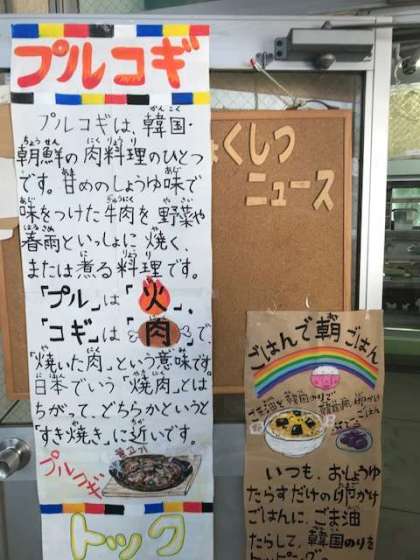 プルコギ
プルコギは、韓国・
朝鮮の肉料理のひとつ
です。甘めのしょうゆ味で
味をつけた牛肉を野菜や
春雨といっしょに焼く、
または煮る料理です。
「プル」は「火」、
「コギ」は「肉」で
「焼いた肉」という意味です。
日本でいう「焼肉」とは
ちがって、どちらかというと
「すき焼き」に近いです。
プルコギ
トック
ょくしつ
ニュース
ごはんで朝ごはん
ごま油と韓国のりで
韓国風
ごはん
いつも、おしょうゆ
たらすだけの卵かけ
ごはんに、ごま油
たらして、韓国のりを